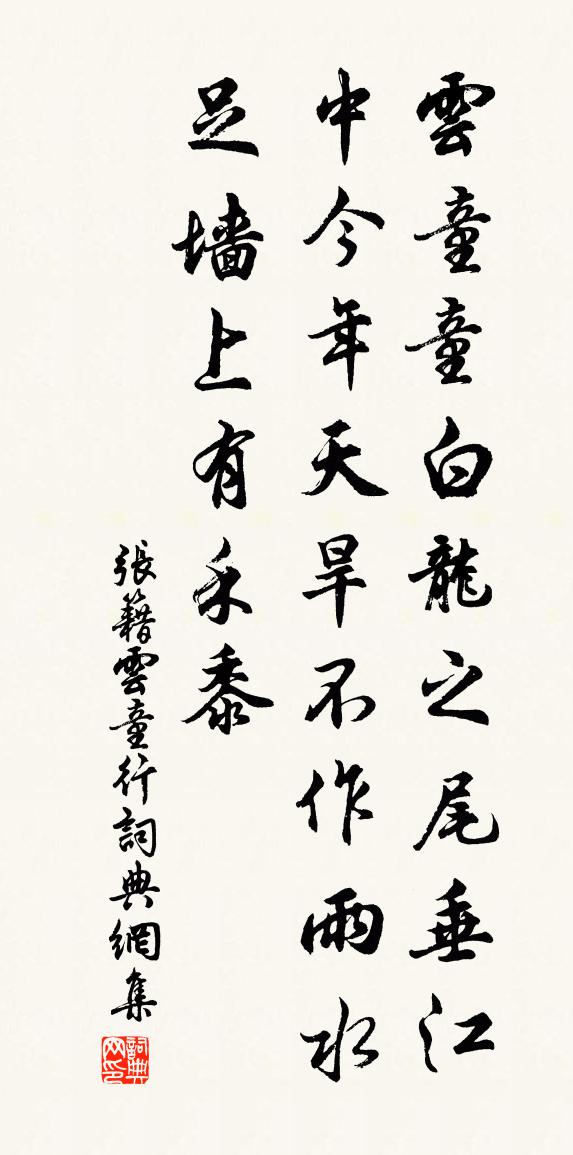 雲童童白龍之尾垂江
中今年天旱不作雨水
足墙上有禾黍
張籍雲童行詞典網集
詞典网印